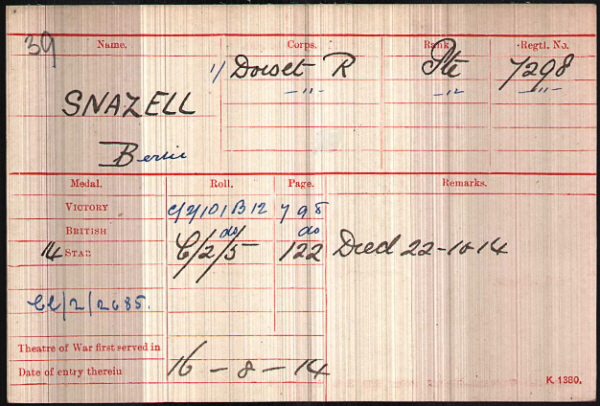 39
Name. Corps. Rank. Regtl. No.
1/ Dorset R Pte 7298
SNAZELL -"- -"- -"-
Bertie
Medal. Roll. Page. Remarks.
VICTORY C/2/101B12 798
BRITISH do do
14 STAR C/2/5 122 Died 22-10-14
CL/2/2685.
Theatre of War first served in
Date of entry therein 16-8-14
K 1380.